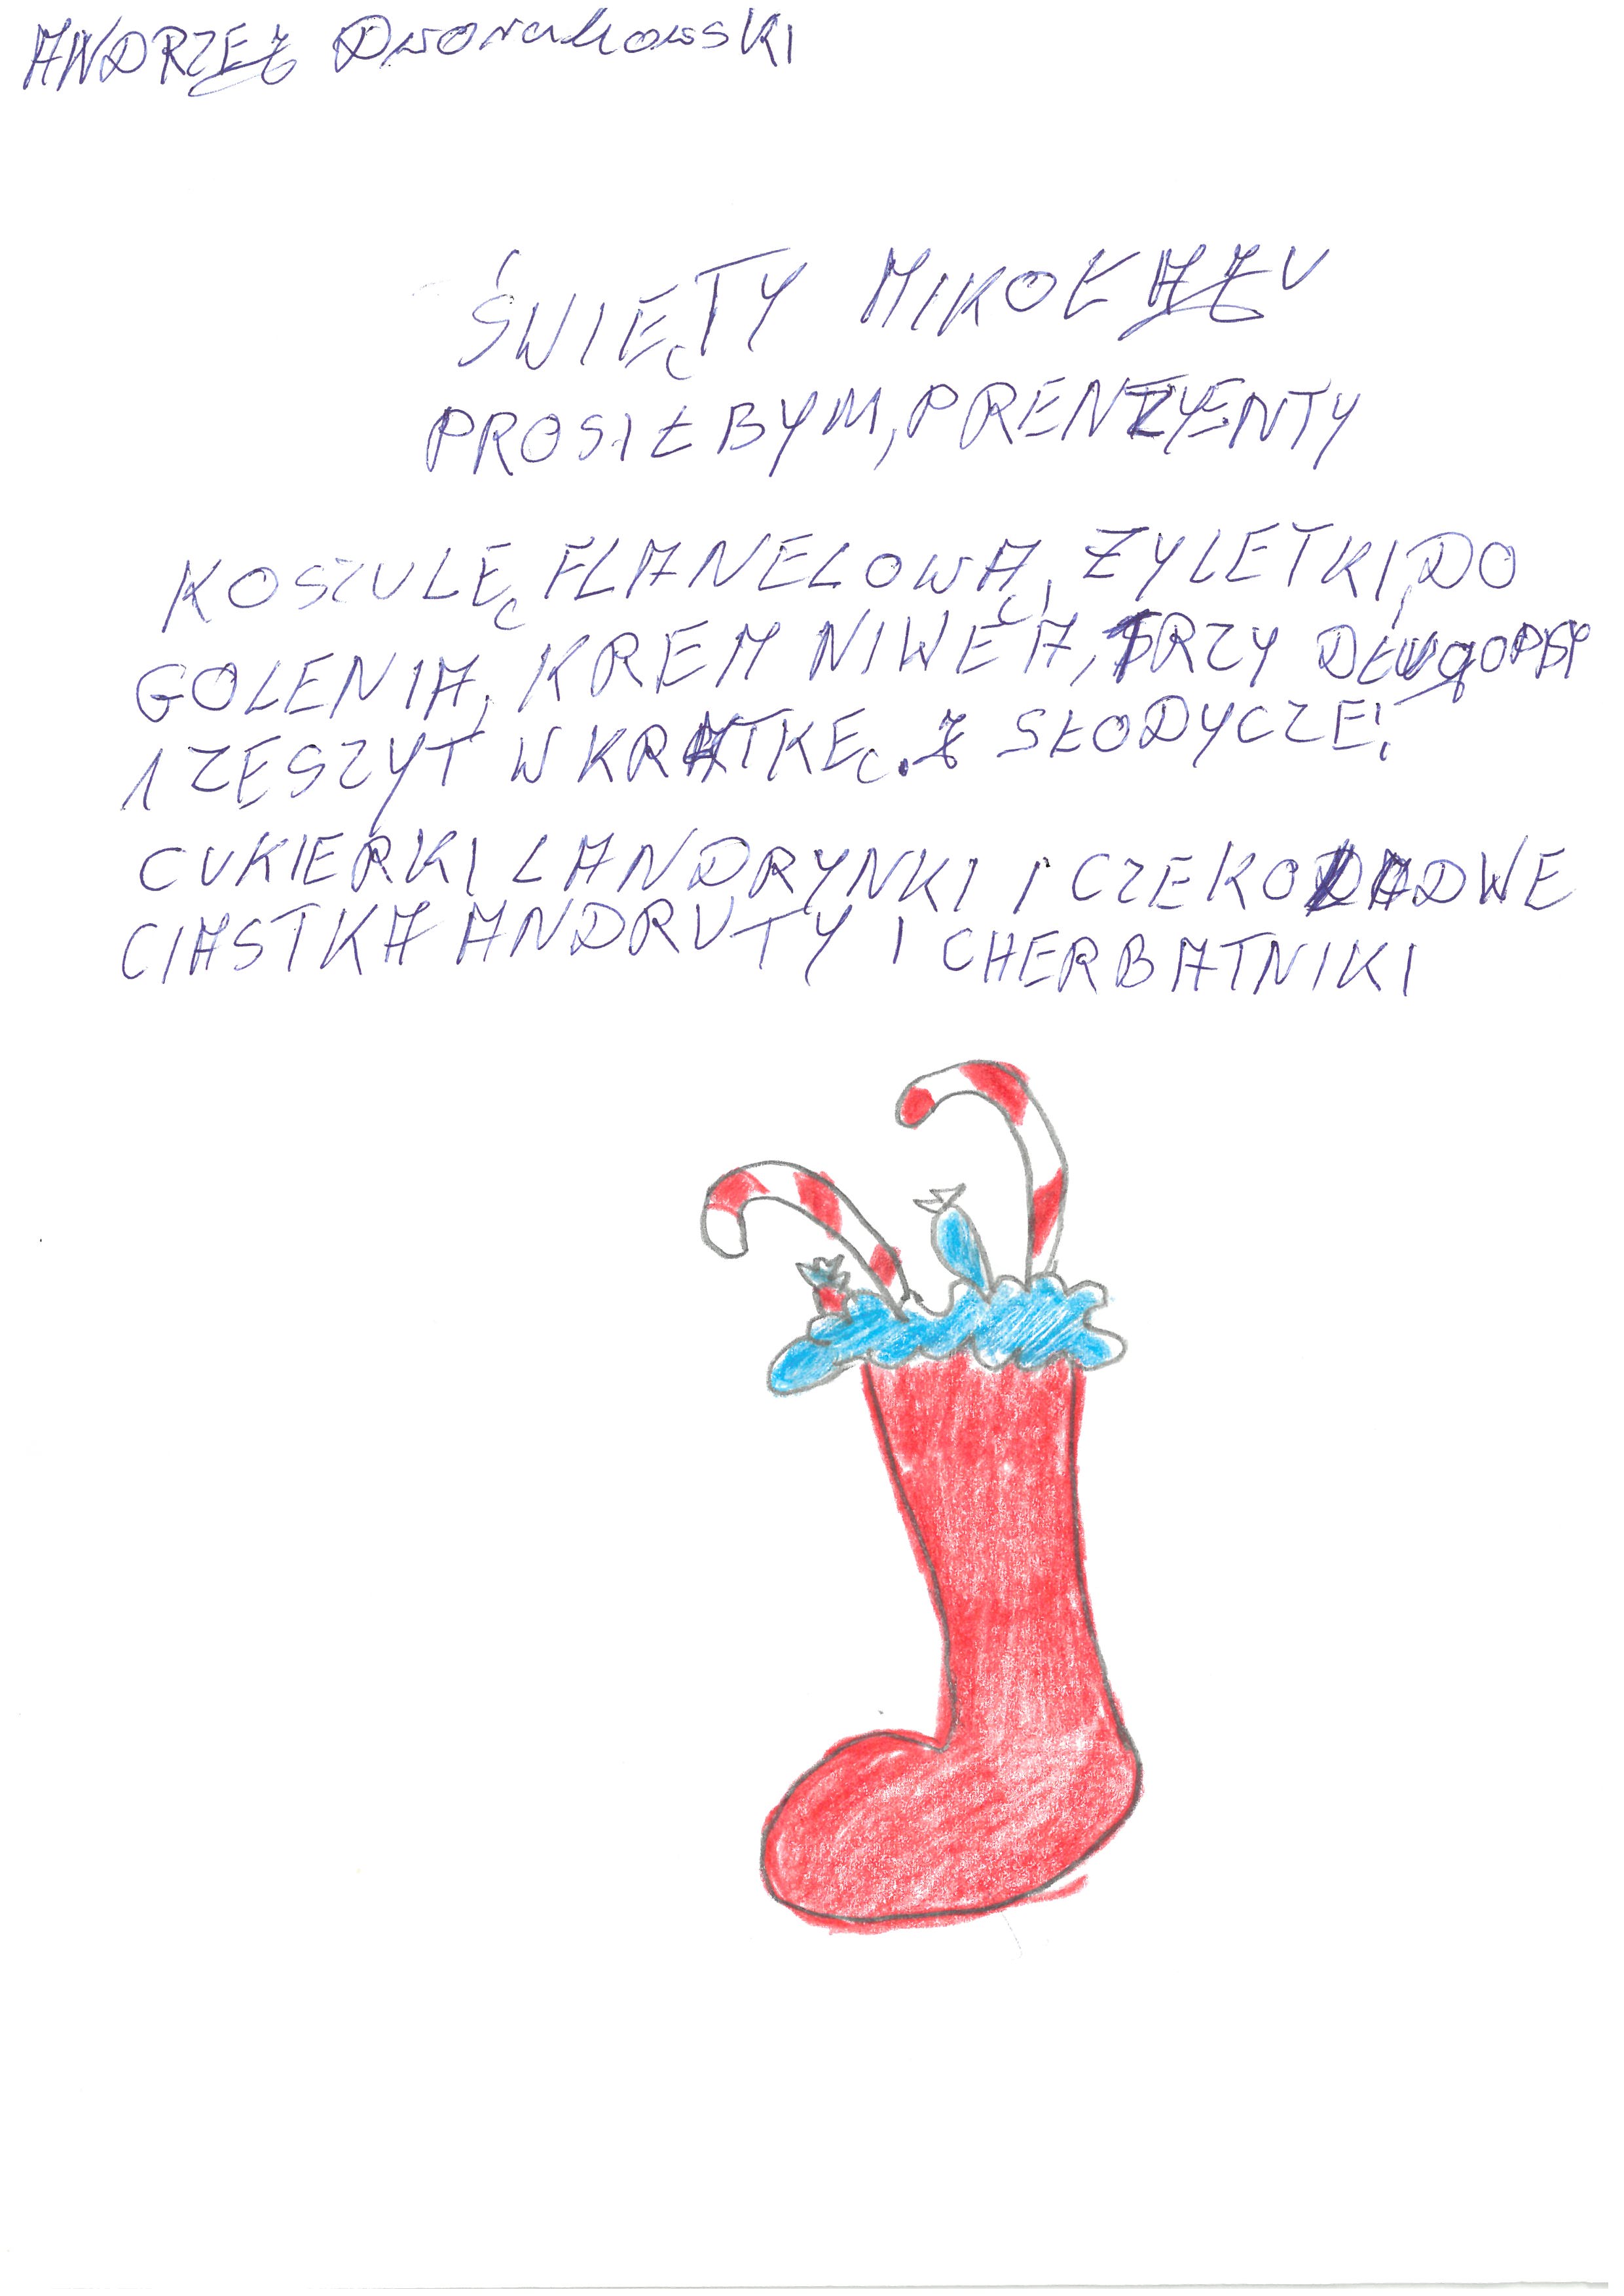 ANDRZEJ Dworakowski
ŚWIĘTY MIKOŁAJU
PROSIŁBYM, PRENZENTY
KOSZULĘ FLANELOWĄ, ŻYLETKI, DO
GOLENIA, KREM NIWEA, TRZY DŁUGOPISY
1 ZESZYT W KRATKĘ. Z SŁODYCZE:
CUKIERKI LANDRYNKI I CZEKOLADWE
CIASTKA ANDRUTY I CHERBATNIKI